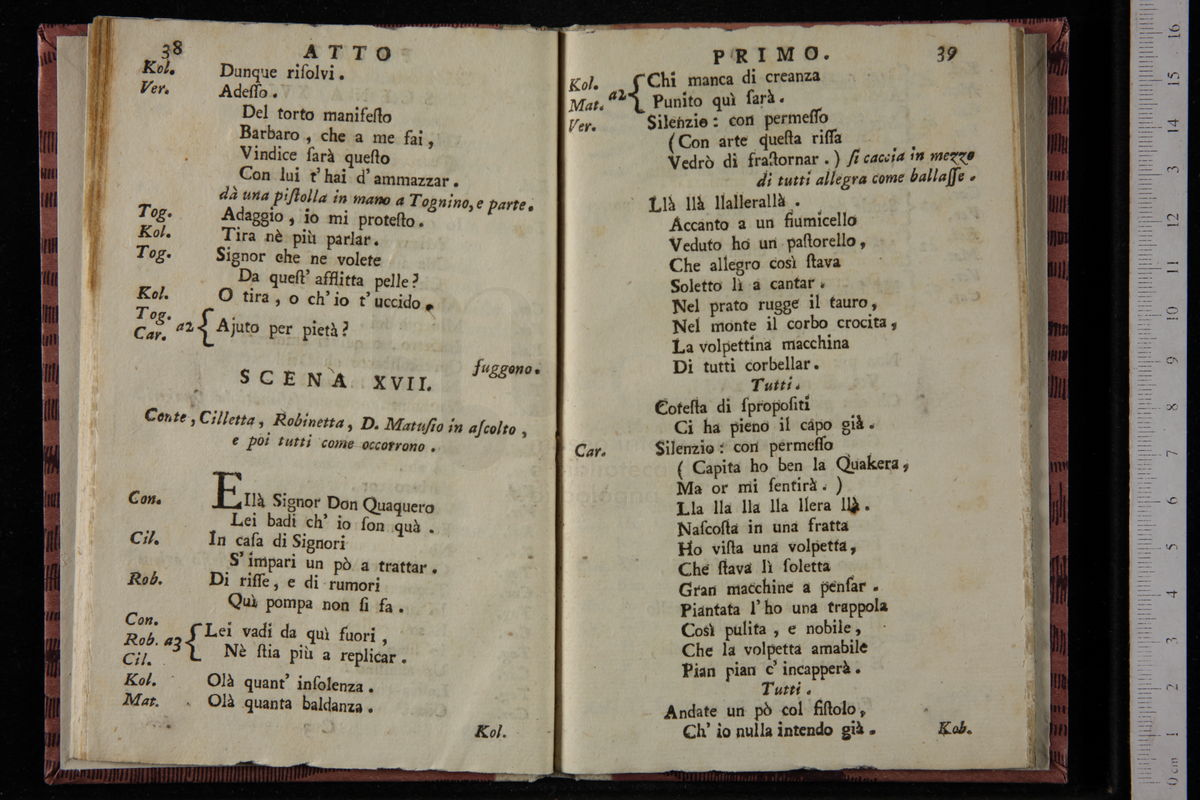 38 ATTO
Kol. Dunque riſolvi.
Ver. Adeſſo.
Del torto manifeſto
Barbaro, che a me fai,
Vindice farà queſto
Con lui t'hai d'ammazzar.
dà una piſtolla in mano a Tognino, e parte.
Tog. Adaggio, io mi proteſto.
Kol. Tira nè più parlar.
Tog. Signor che ne volete
Da queſt' afflitta pelle?
Kol. O tira, o ch'io t'uccido.
Tog.
Car. a2 { Ajuto per pietà?
fuggono.
SCENA XVII.
Conte, Cilletta, Robinetta, D. Matuſio in aſcolto,
e poi tutti come occorrono.
Con. Ellà Signor Don Quaquero
Lei badi ch' io ſon quà.
Cil. In caſa di Signori
S'impari un pò a trattar.
Rob. Di riſſe, e di rumori
Quì pompa non ſi fa.
Con.
Rob. a3 { Lei vadi da quì fuori,
Cil. Nè ſtia più a replicar.
Kol. Olà quant' inſolenza.
Mat. Olà quanta baldanza.
Kol.
PRIMO. 39
Kol. a2 { Chi manca di creanza
Mat. Punito quì ſarà.
Ver. Silenzio: con permeſſo
(Con arte queſta riſſa
Vedrò di fraſtornar.) ſi caccia in mezzo
di tutti allegra come ballaſſe.
Llà llà llallerallà.
Accanto a un fiumicello
Veduto ho un paſtorello,
Che allegro così ſtava
Soletto lì a cantar.
Nel prato rugge il tauro,
Nel monte il corbo crocita,
La volpettina macchina
Di tutti corbellar.
Tutti.
Coteſta di ſpropoſiti
Ci ha pieno il capo già.
Car. Silenzio: con permeſſo
(Capita ho ben la Quakera,
Ma or mi ſentirà.)
Lla lla lla lla llera llà.
Naſcoſta in una fratta
Ho viſta una volpetta,
Che ſtava lì ſoletta
Gran macchine a penſar.
Piantata l'ho una trappola
Così pulita, e nobile,
Che la volpetta amabile
Pian pian c' incapperà.
Tutti.
Andate un pò col fiſtolo,
Ch' io nulla intendo già. Kob.